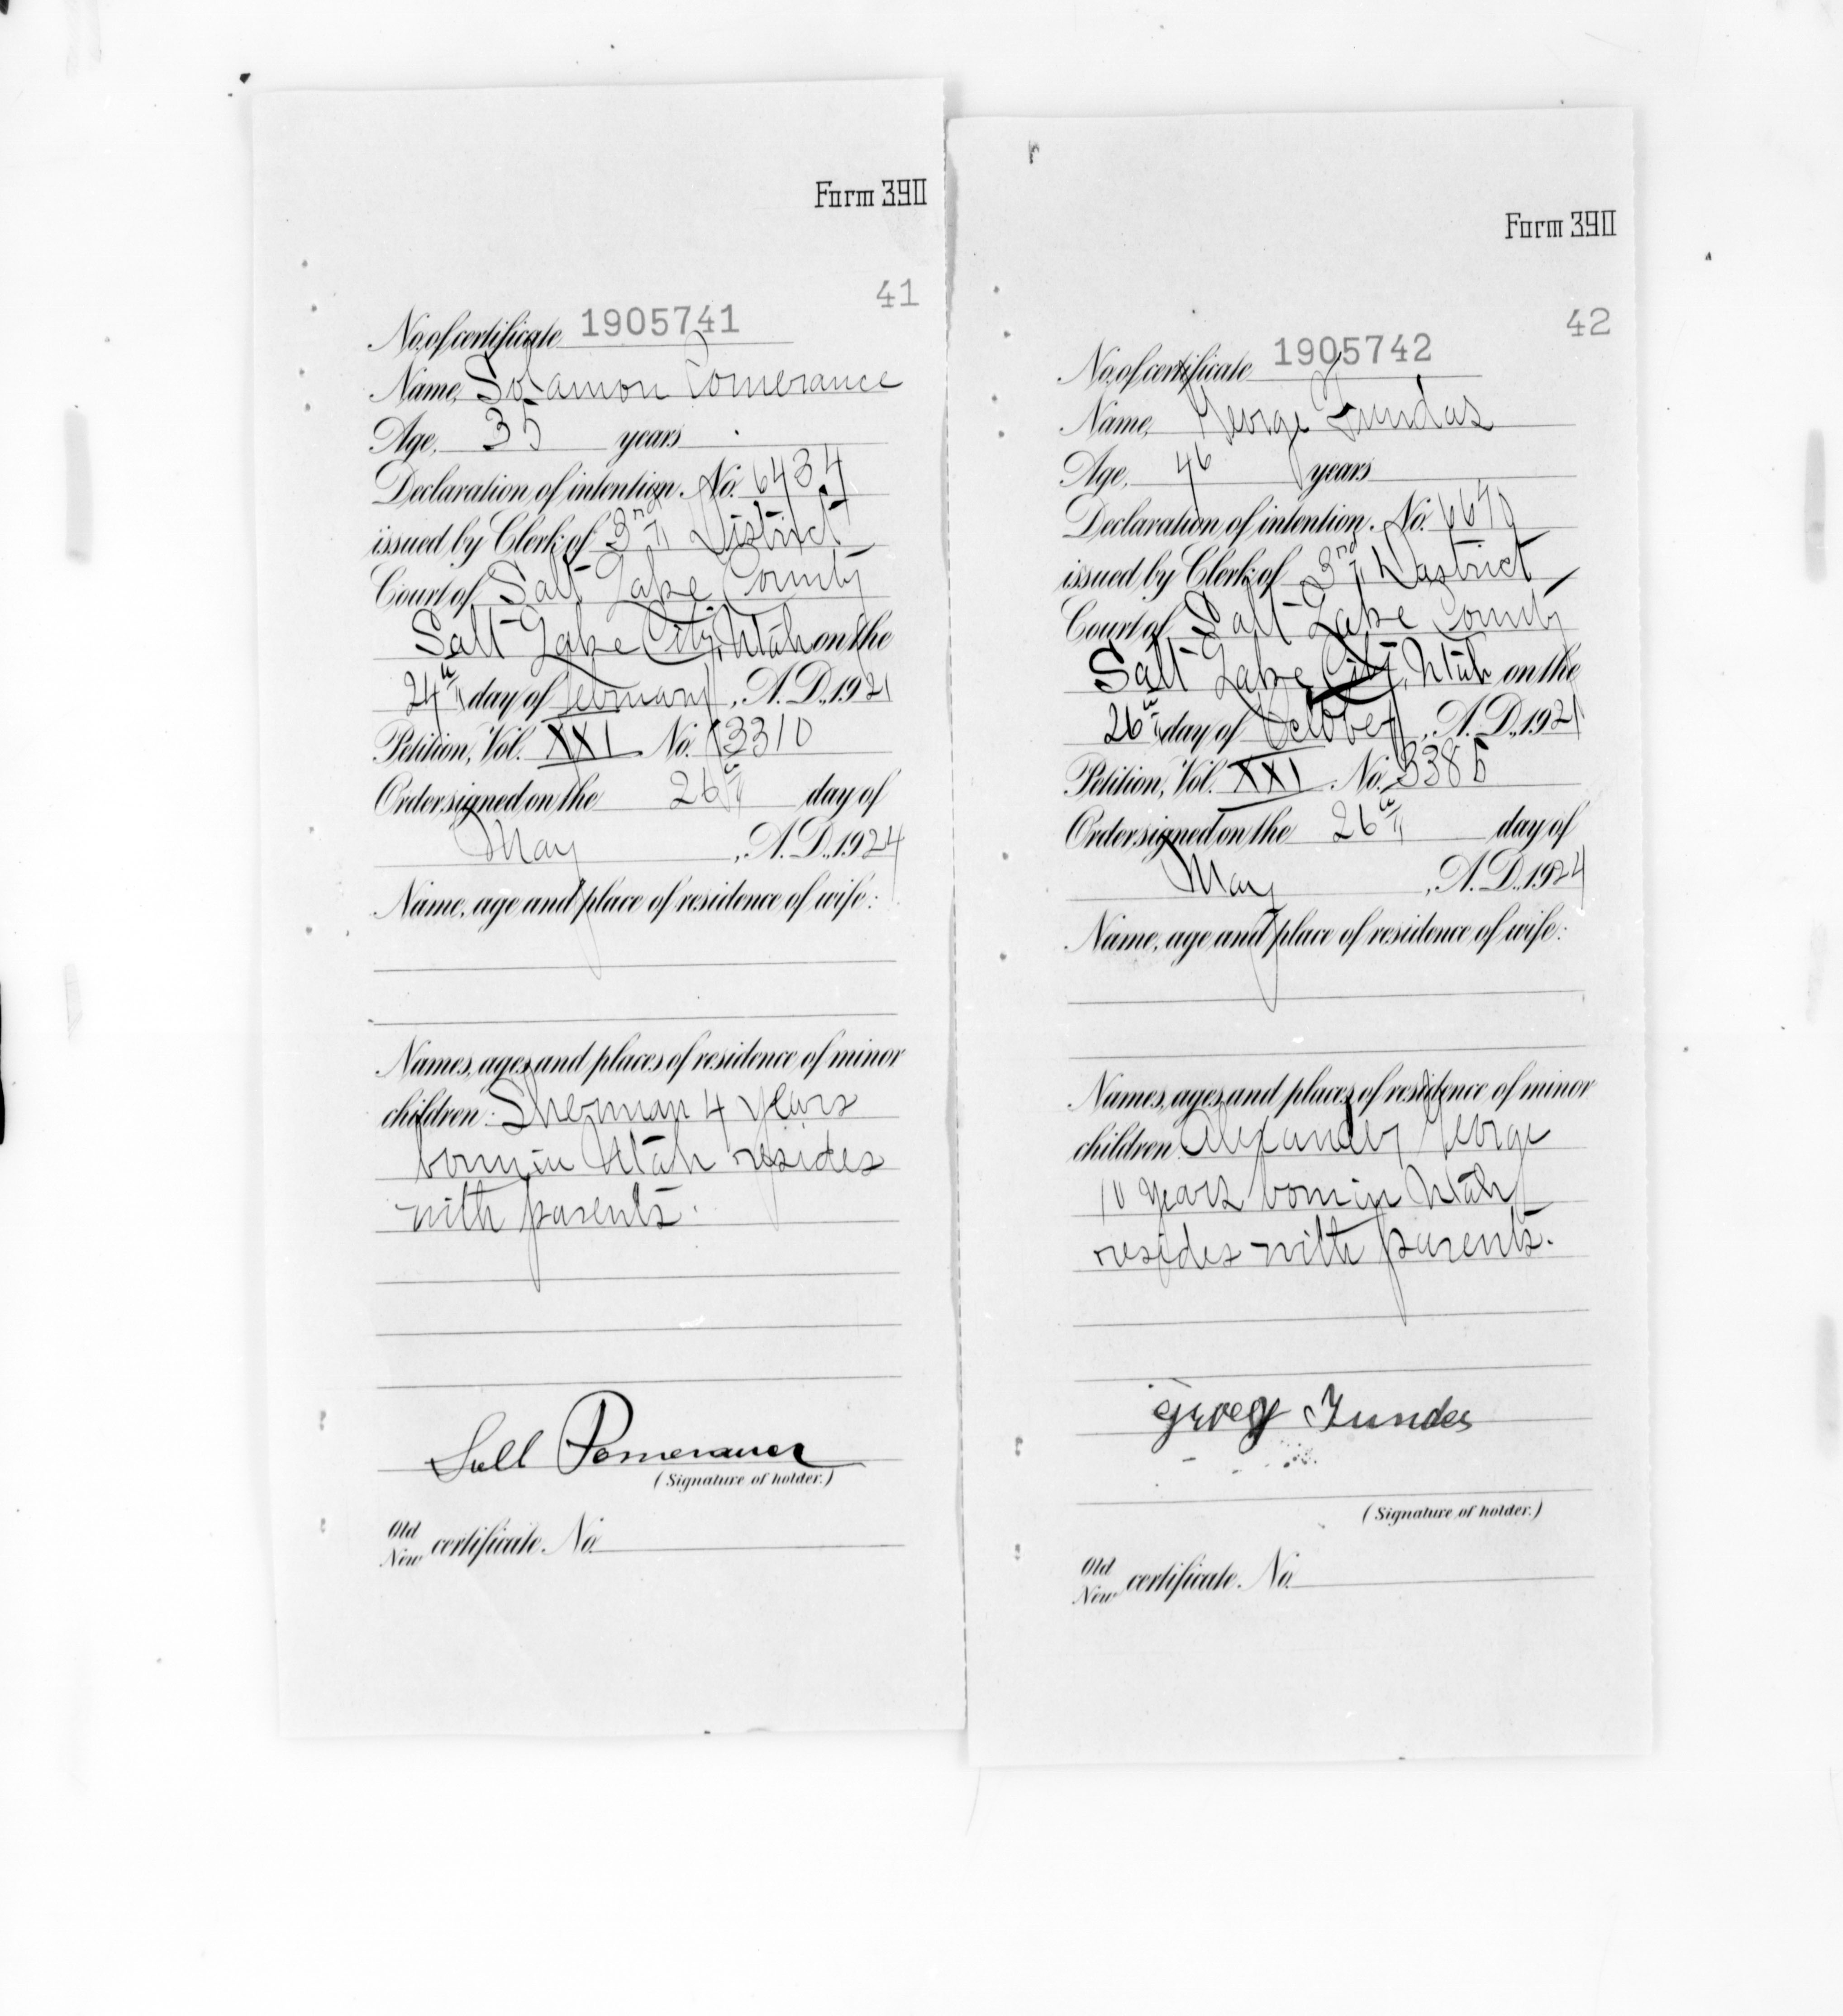 Form 390
41
No. of certificate 1905741
Name, Solamon Pomerance
Age, 35 years
Declaration of intention. No. 6434
issued by Clerk of 3rd District
Court of Salt Lake County
Salt Lake City, Utah on the
24th day of February, A.D., 1921
Petition, Vol. XXI No. 3310
Order signed on the 26th day of
May, A.D., 1924
Name, age and place of residence of wife:
Names, ages and places of residence of minor
children: Sherman 4 years
born in Utah resides
with parents.
Pomerance
(Signature of holder.)
Old
New certificate. No.
Form 390
42
No. of certificate 1905742
Name, George Fundas
Age, 46 years
Declaration of intention. No.
issued by Clerk of 3rd District
Court of Salt Lake County
Salt Lake City, Utah on the
26th day of October, A.D., 1921
Petition, Vol. XXI No. 3385
Order signed on the 26th day of
May, A.D., 1924
Name, age and place of residence of wife:
Names, ages and places of residence of minor
children Alexander George
10 years born in Utah
resides with parents.
Fundas
(Signature of holder.)
Old
New certificate. No.